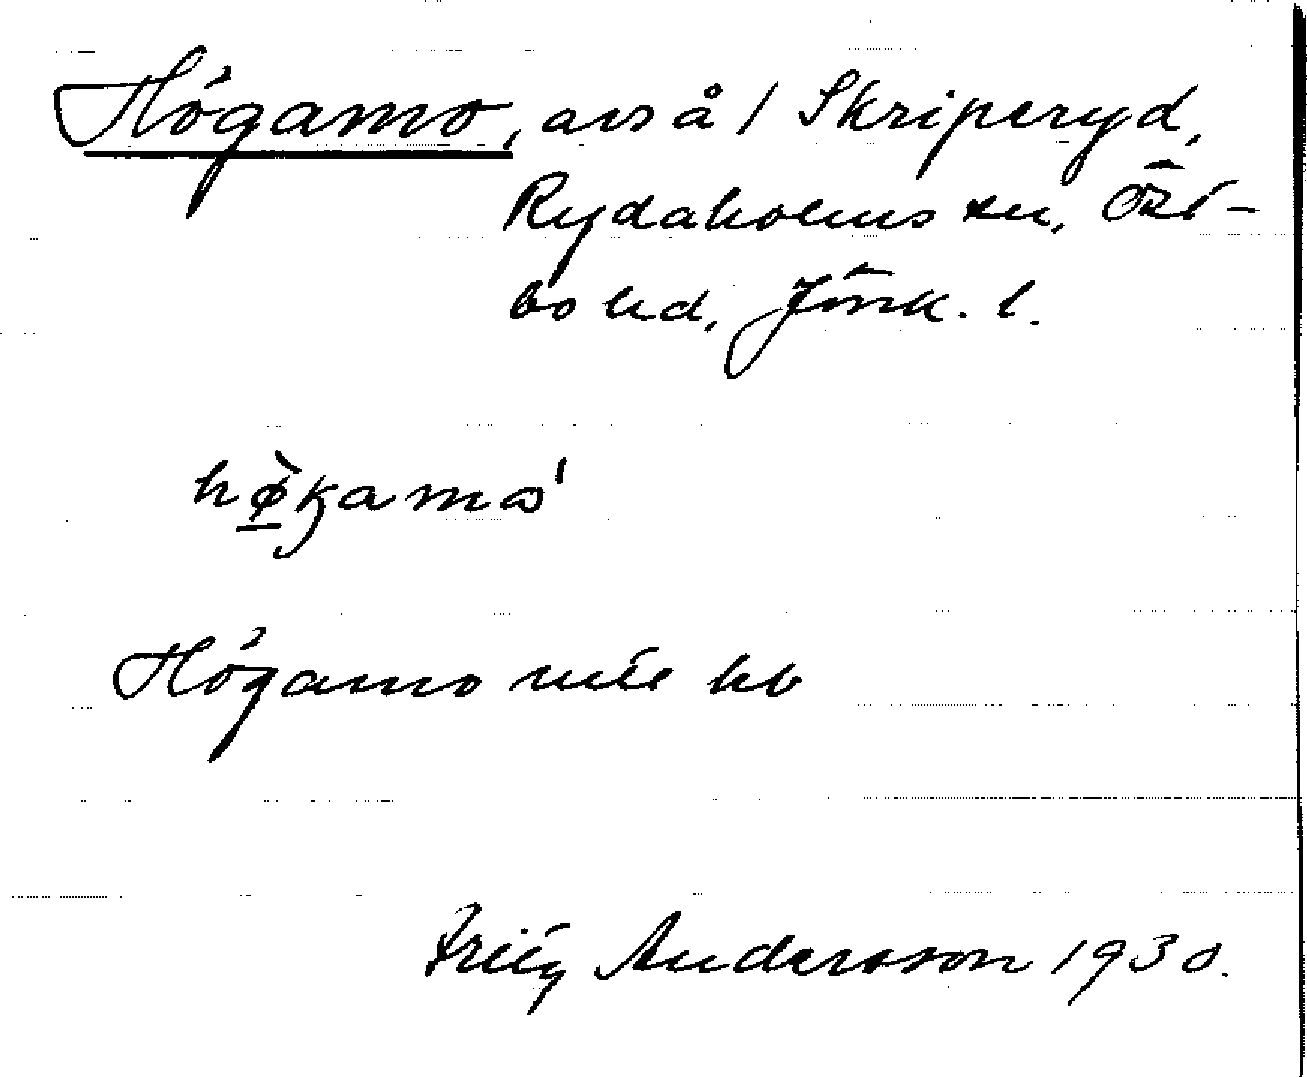 Högamo, avs å / Skriperyd,
Rydaholms sn, Öst-
bo hd, Jönk. l.
hø̀gamɷ'
Högamo mte hb
Fritz Andersson 1930.